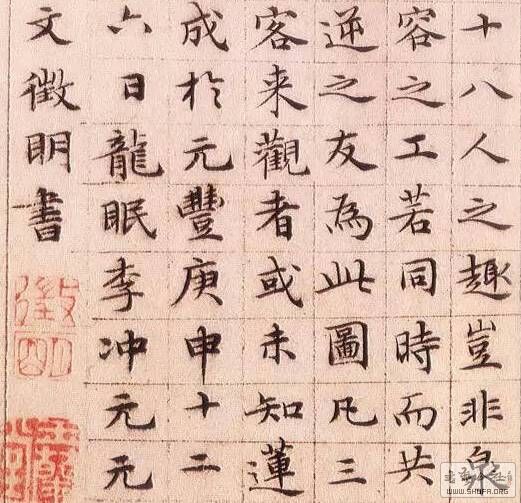 十八人之趣豈非
容之工若同時而共
逆之友為此圖凡三
客来觀者或未知蓮
成於元豐庚申十二
六日龍眠李冲元元
文徵明書
徵明
WWW.SHUFA.ORG